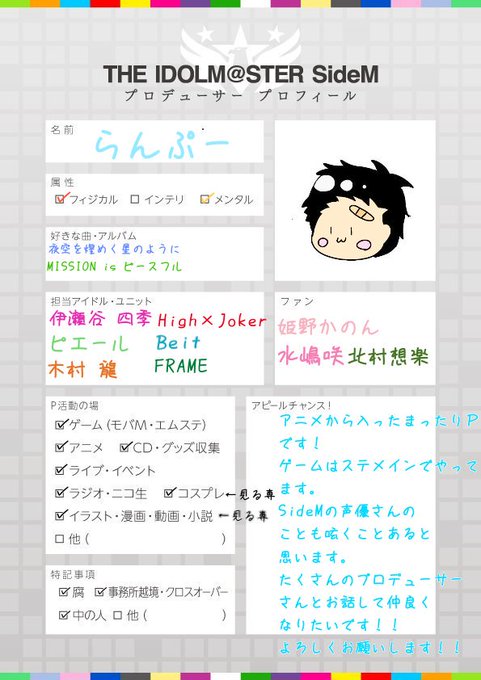 THE IDOLM@STER SideM
プロデューサー プロフィール
名前
らんぷー
属性
☑フィジカル ☐インテリ ☑メンタル
好きな曲・アルバム
夜空を埋めく星のように
MISSION is ピースフル
担当アイドル・ユニット
伊瀬谷 四季 High×Joker
ピエール Beit
木村 龍 FRAME
ファン
姫野かのん
水嶋咲 北村想楽
P活動の場
☑ゲーム(モバM・エムステ)
☑アニメ ☑CD・グッズ収集
☑ライブ・イベント
☑ラジオ・ニコ生 ☑コスプレ←見る専
☑イラスト・漫画・動画・小説 ←見る専
☐他( )
特記事項
☑腐 ☑事務所越境・クロスオーバー
☑中の人 ☐他( )
アピールチャンス!
アニメから入ったまったりP
です!
ゲームはステメインでやって
ます。
SideMの声優さんの
ことも呟くことあると
思います。
たくさんのプロデューサー
さんとお話して仲良く
なりたいです!!
よろしくお願いします!!